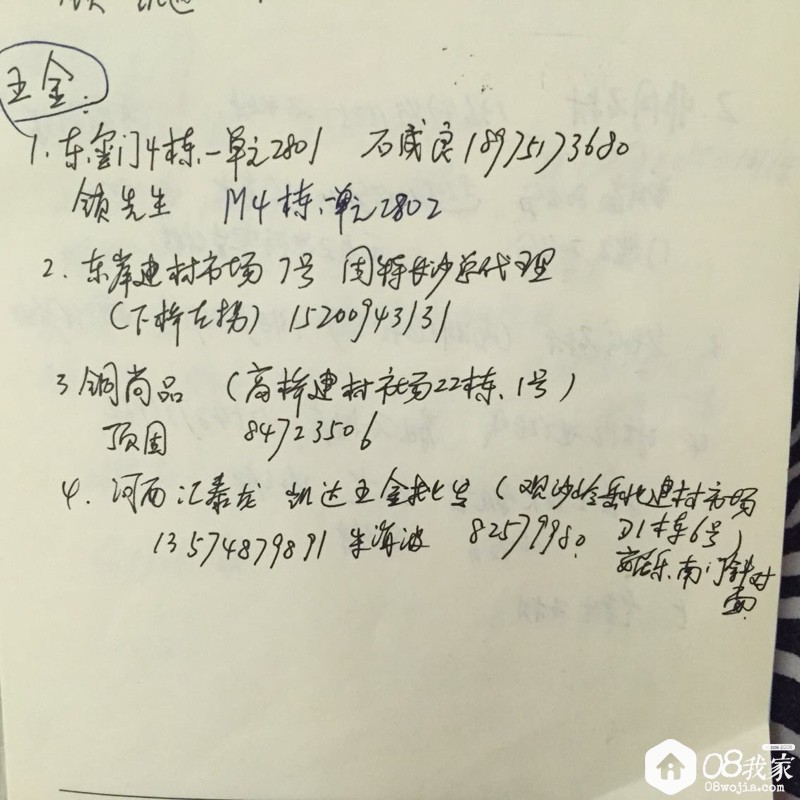 五金:
1. 东 门4栋.一单元2801 石成良18975173680
先生 M4栋.一单元2802
2. 东岸建材市场7号 固特长沙总代理
(下桥左拐) 15200943131
3 铜尚品 (高桥建材市场22栋.1号)
顶固 84723506
4. 河西汇泰龙 凯达五金批发 (观沙岭岳北建材市场
13574879891 朱海波 82579980. D1栋6号)
南门斜对
面.
08我家
08wojia.com